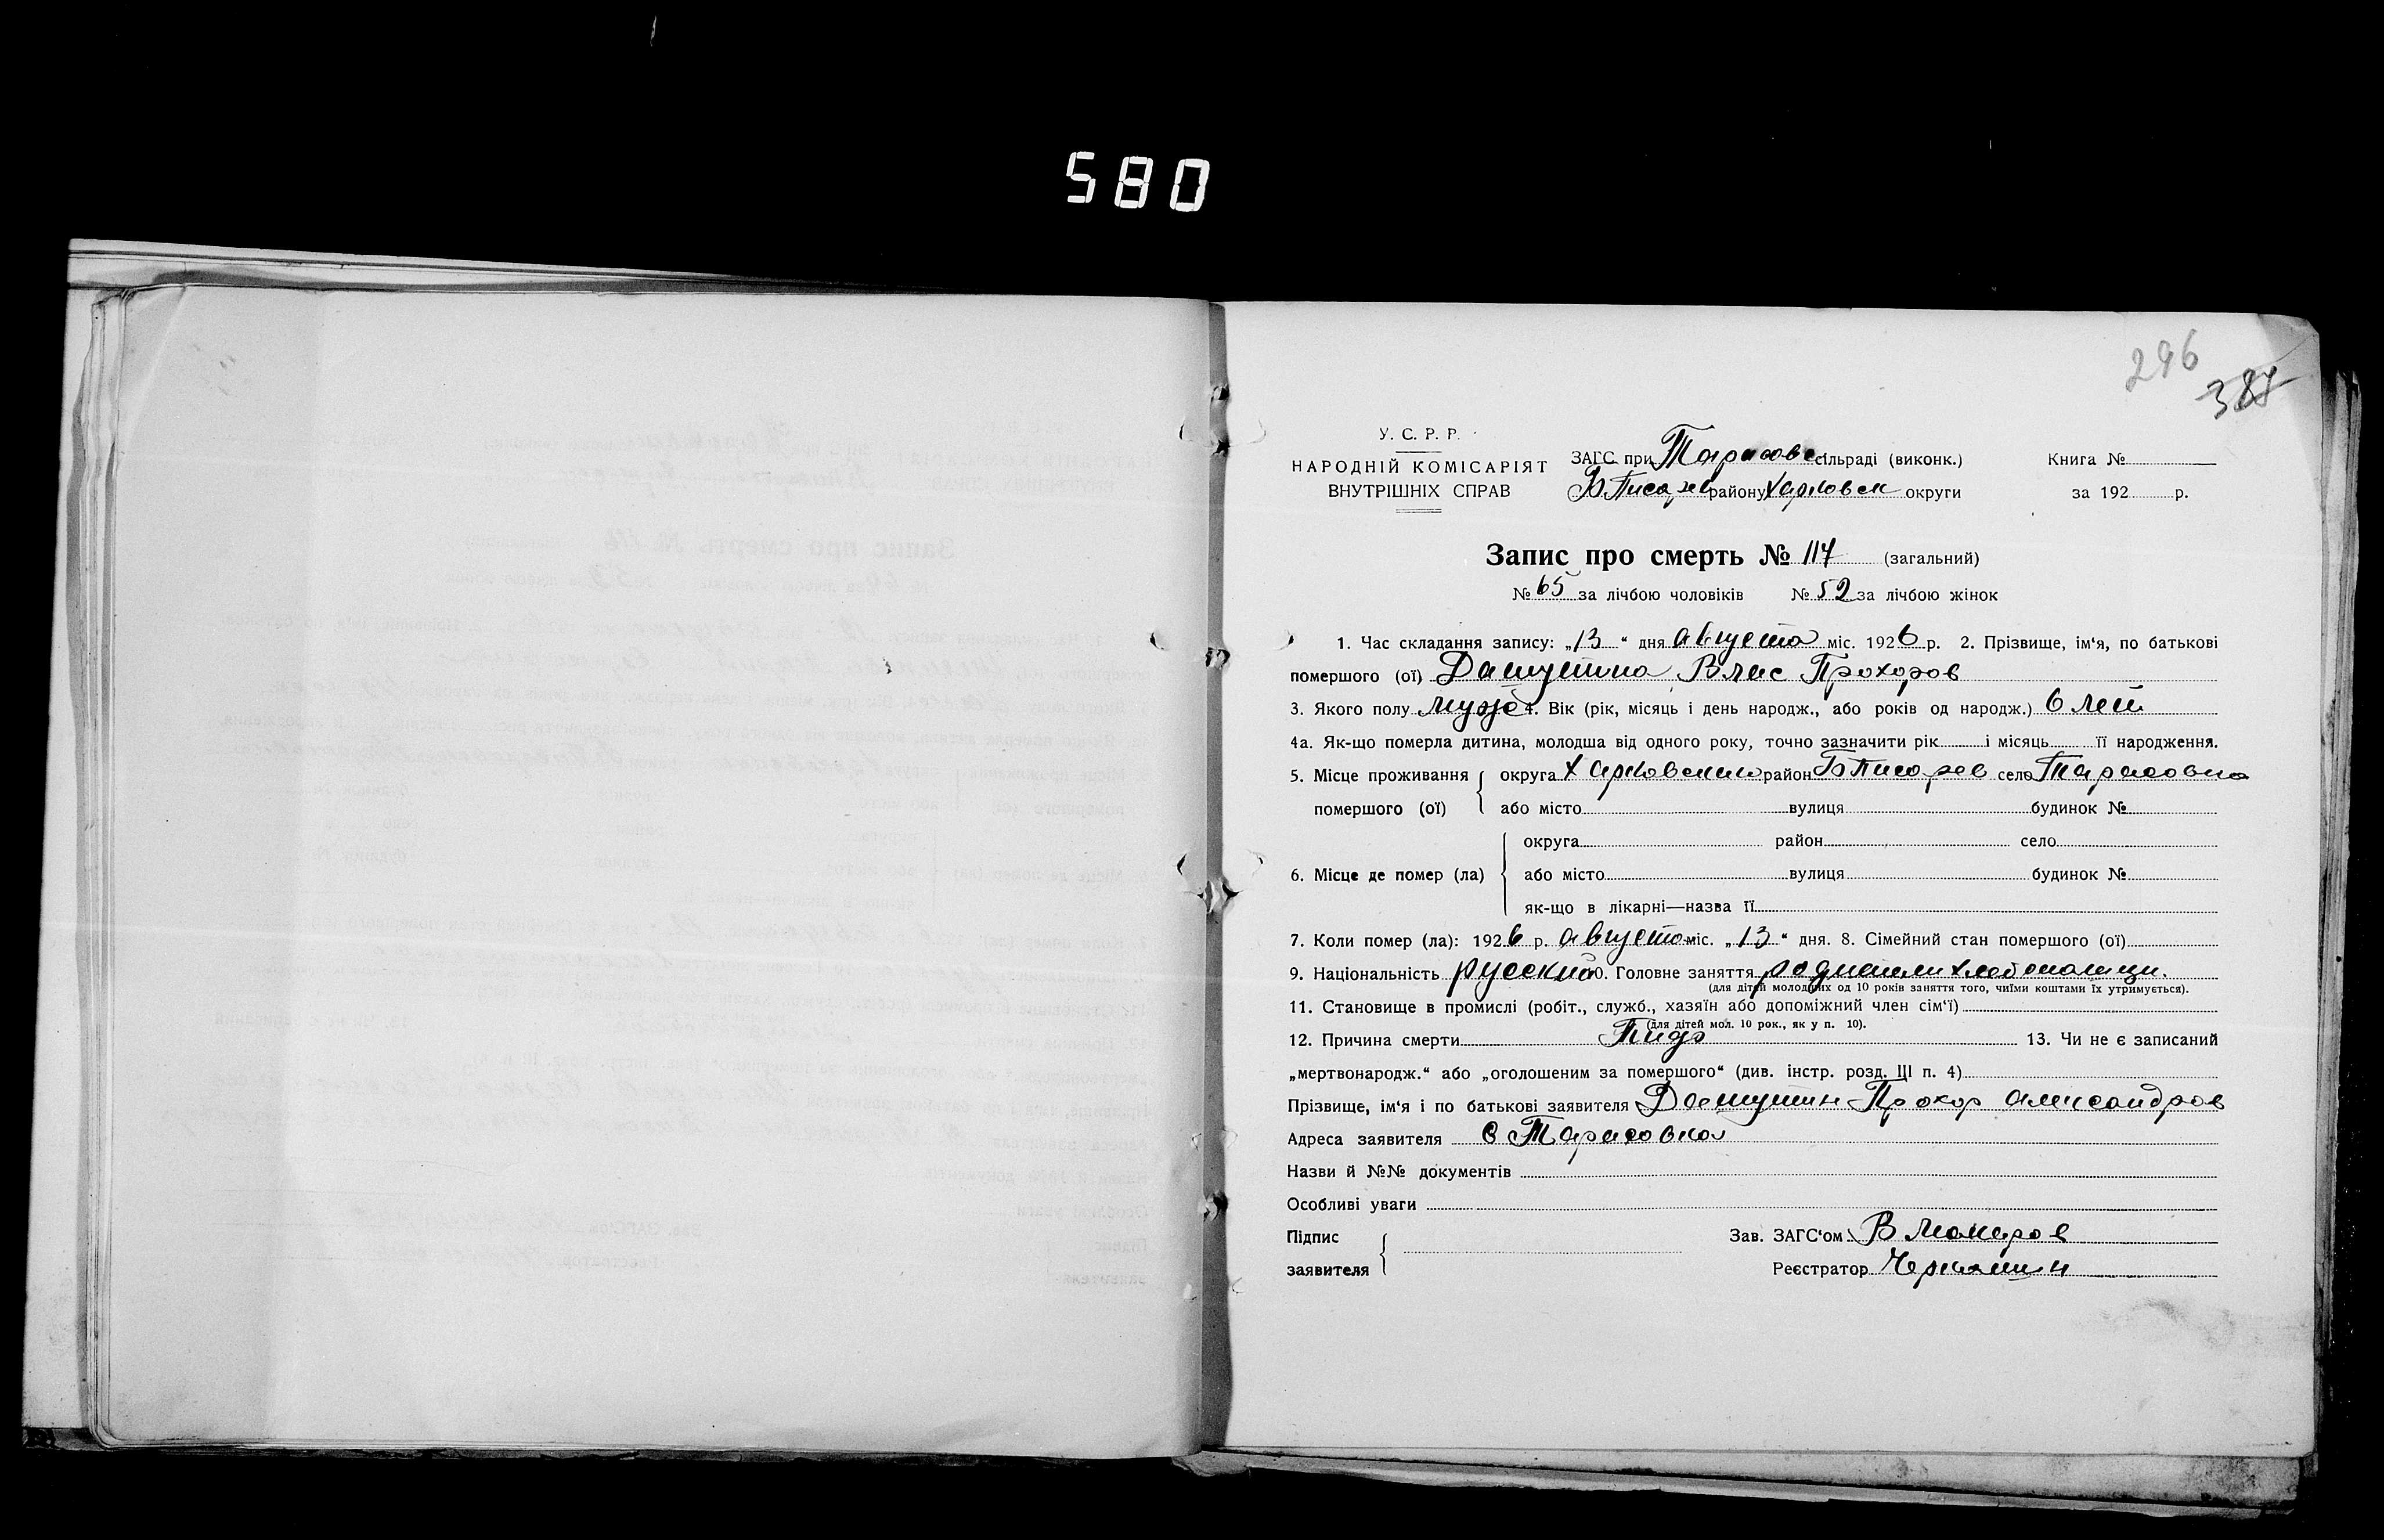 580
296
387
У. С. Р. Р.
НАРОДНІЙ КОМІСАРІЯТ
ВНУТРІШНІХ СПРАВ
ЗАГС при Тарасовс сільраді (виконк.)
Б Писарев району Харковск округи
Книга №
за 192 р.
Запис про смерть № 117 (загальний)
№ 65 за лічбою чоловіків № 52 за лічбою жінок
1. Час складання запису: „13“ дня августа міс. 1926 р. 2. Прізвище, ім‘я, по батькові
помершого (ої) Влас Прохоров
3. Якого полу муж 4. Вік (рік, місяць і день народж., або років од народж.) 6 лет
4а. Як-що померла дитина, молодша від одного року, точно зазначити рік і місяць її народження.
5. Місце проживання помершого (ої) округа Харковского район Б Писарев село Тарасовка
або місто вулиця будинок №
6. Місце де помер (ла) округа район село
або місто вулиця будинок №
як-що в лікарні—назва її
7. Коли помер (ла): 1926 р. августа міс. „13“ дня. 8. Сімейний стан помершого (ої)
9. Національність русский 10. Головне заняття родители хлебопашцы.
(для дітей молодших од 10 років заняття того, чиїми коштами їх утримується).
11. Становище в промислі (робіт., служб., хазяїн або допоміжний член сім‘ї)
(для дітей мол. 10 рок., як у п. 10).
12. Причина смерти 13. Чи не є записаний
„мертвонародж.“ або „оголошеним за помершого“ (див. інстр. розд. III п. 4)
Прізвище, ім‘я і по батькові заявителя Прохор Александров
Адреса заявителя с Тарасовка
Назви й №№ документів
Особливі уваги
Підпис
заявителя
Зав. ЗАГС‘ом
Реєстратор